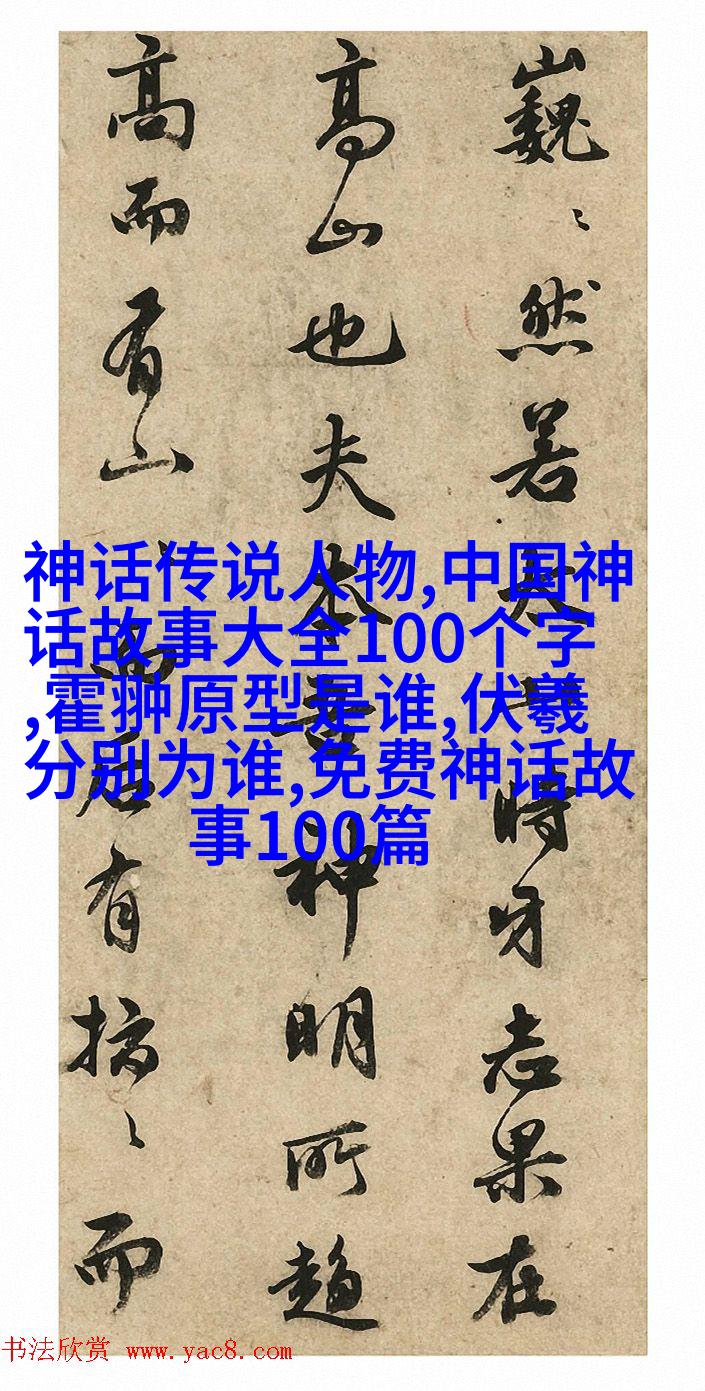 巍〻然若時牙志果在
高山也夫神明所趨
高而有山有而
神话传说人物,中国神
话故事大全100个字
,霍翀原型是谁,伏羲
分别为谁,免费神话故
事100篇
书法欣赏 www.yac8.com